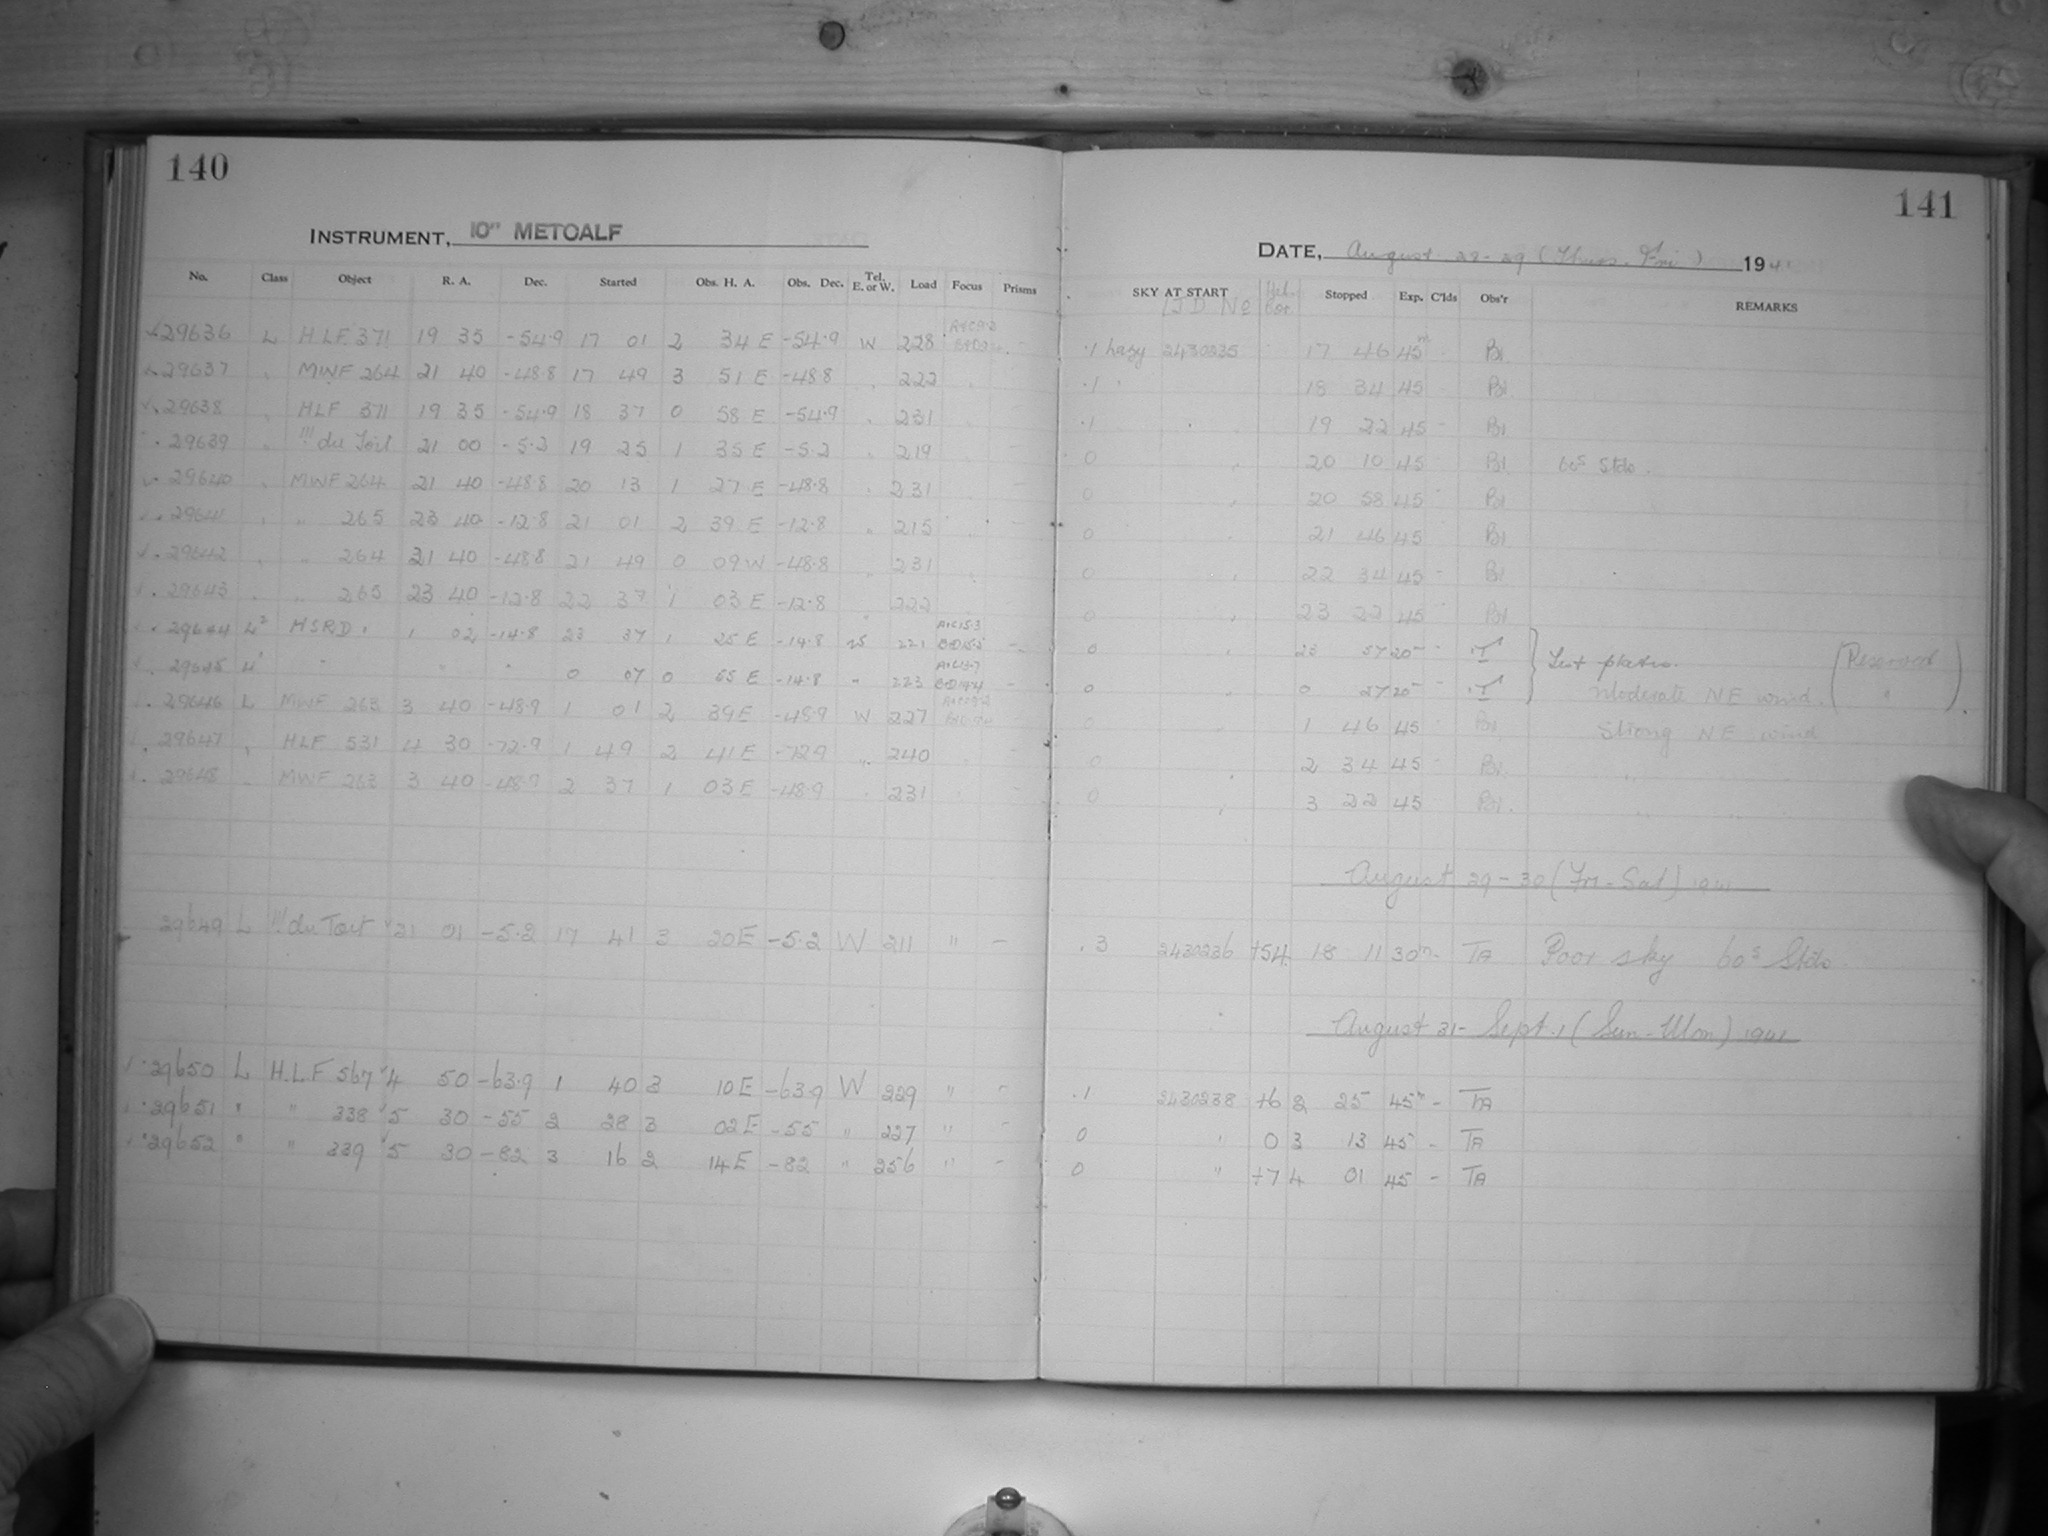 140
INSTRUMENT, 10" METCALF
No. Class Object R. A. Dec. Started Obs. H. A. Obs. Dec. Tel. E. or W. Load Focus Prisms
29636 L HLF 371 19 35 -54.9 17 01 2 34 E -54.9 W 228
29637 MWF 264 21 40 -48.8 17 49 3 51 E -48.8 222
29638 HLF 371 19 35 -54.9 18 37 0 58 E -54.9 231
29639 !!! du Toit 21 00 -5.2 19 25 1 35 E -5.2 219
29640 MWF 264 21 40 -48.8 20 13 1 27 E -48.8 231
29641 " 265 23 40 -12.8 21 01 2 39 E -12.8 215
29642 " 264 21 40 -48.8 21 49 0 09 W -48.8 231
29643 " 265 23 40 -12.8 22 37 1 03 E -12.8 222
29644 HSRD 1 02 -14.8 23 37 1 25 E -14.8 W 221
29645 " " " 0 07 0 55 E -14.8 " 223
29646 L MWF 263 3 40 -48.9 1 01 2 39 E -48.9 W 227
29647 HLF 531 4 30 -72.9 1 49 2 41 E -72.9 240
29648 MWF 263 3 40 -48.9 2 37 1 03 E -48.9 231
29649 L !!! du Toit 21 01 -5.2 17 41 3 20 E -5.2 W 211 " -
29650 L H.L.F 567 4 50 -63.9 1 40 3 10 E -63.9 W 229 " -
29651 " " 338 5 30 -55 2 28 3 02 E -55 " 227 " -
29652 " " 339 5 30 -82 3 16 2 14 E -82 " 256 " -
141
DATE, August 28-29 (Thurs-Fri) 194
SKY AT START JD No Stopped Exp. C'lds Obs'r REMARKS
.1 hazy 2430235 17 46 45m Bl
.1 18 34 45 Bl
.1 19 22 45 Bl
0 20 10 45 Bl 60s Stds.
0 20 58 45 Bl
0 21 46 45 Bl
0 22 34 45 Bl
0 23 22 45 Bl
0 23 57 20 Test plates. (Reserved
0 0 27 20 Moderate NE wind. " )
0 1 46 45 Bl Strong NE wind
0 2 34 45 Bl " "
0 3 22 45 Bl " "
August 29-30 (Fri-Sat) 1941
.3 2430236 +54 18 11 30m - TA Poor sky 60s Stds
August 31- Sept. 1 (Sun-Mon) 1941
.1 2430238 +6 2 25 45m - TA
0 " 0 3 13 45 - TA
0 " +7 4 01 45 - TA